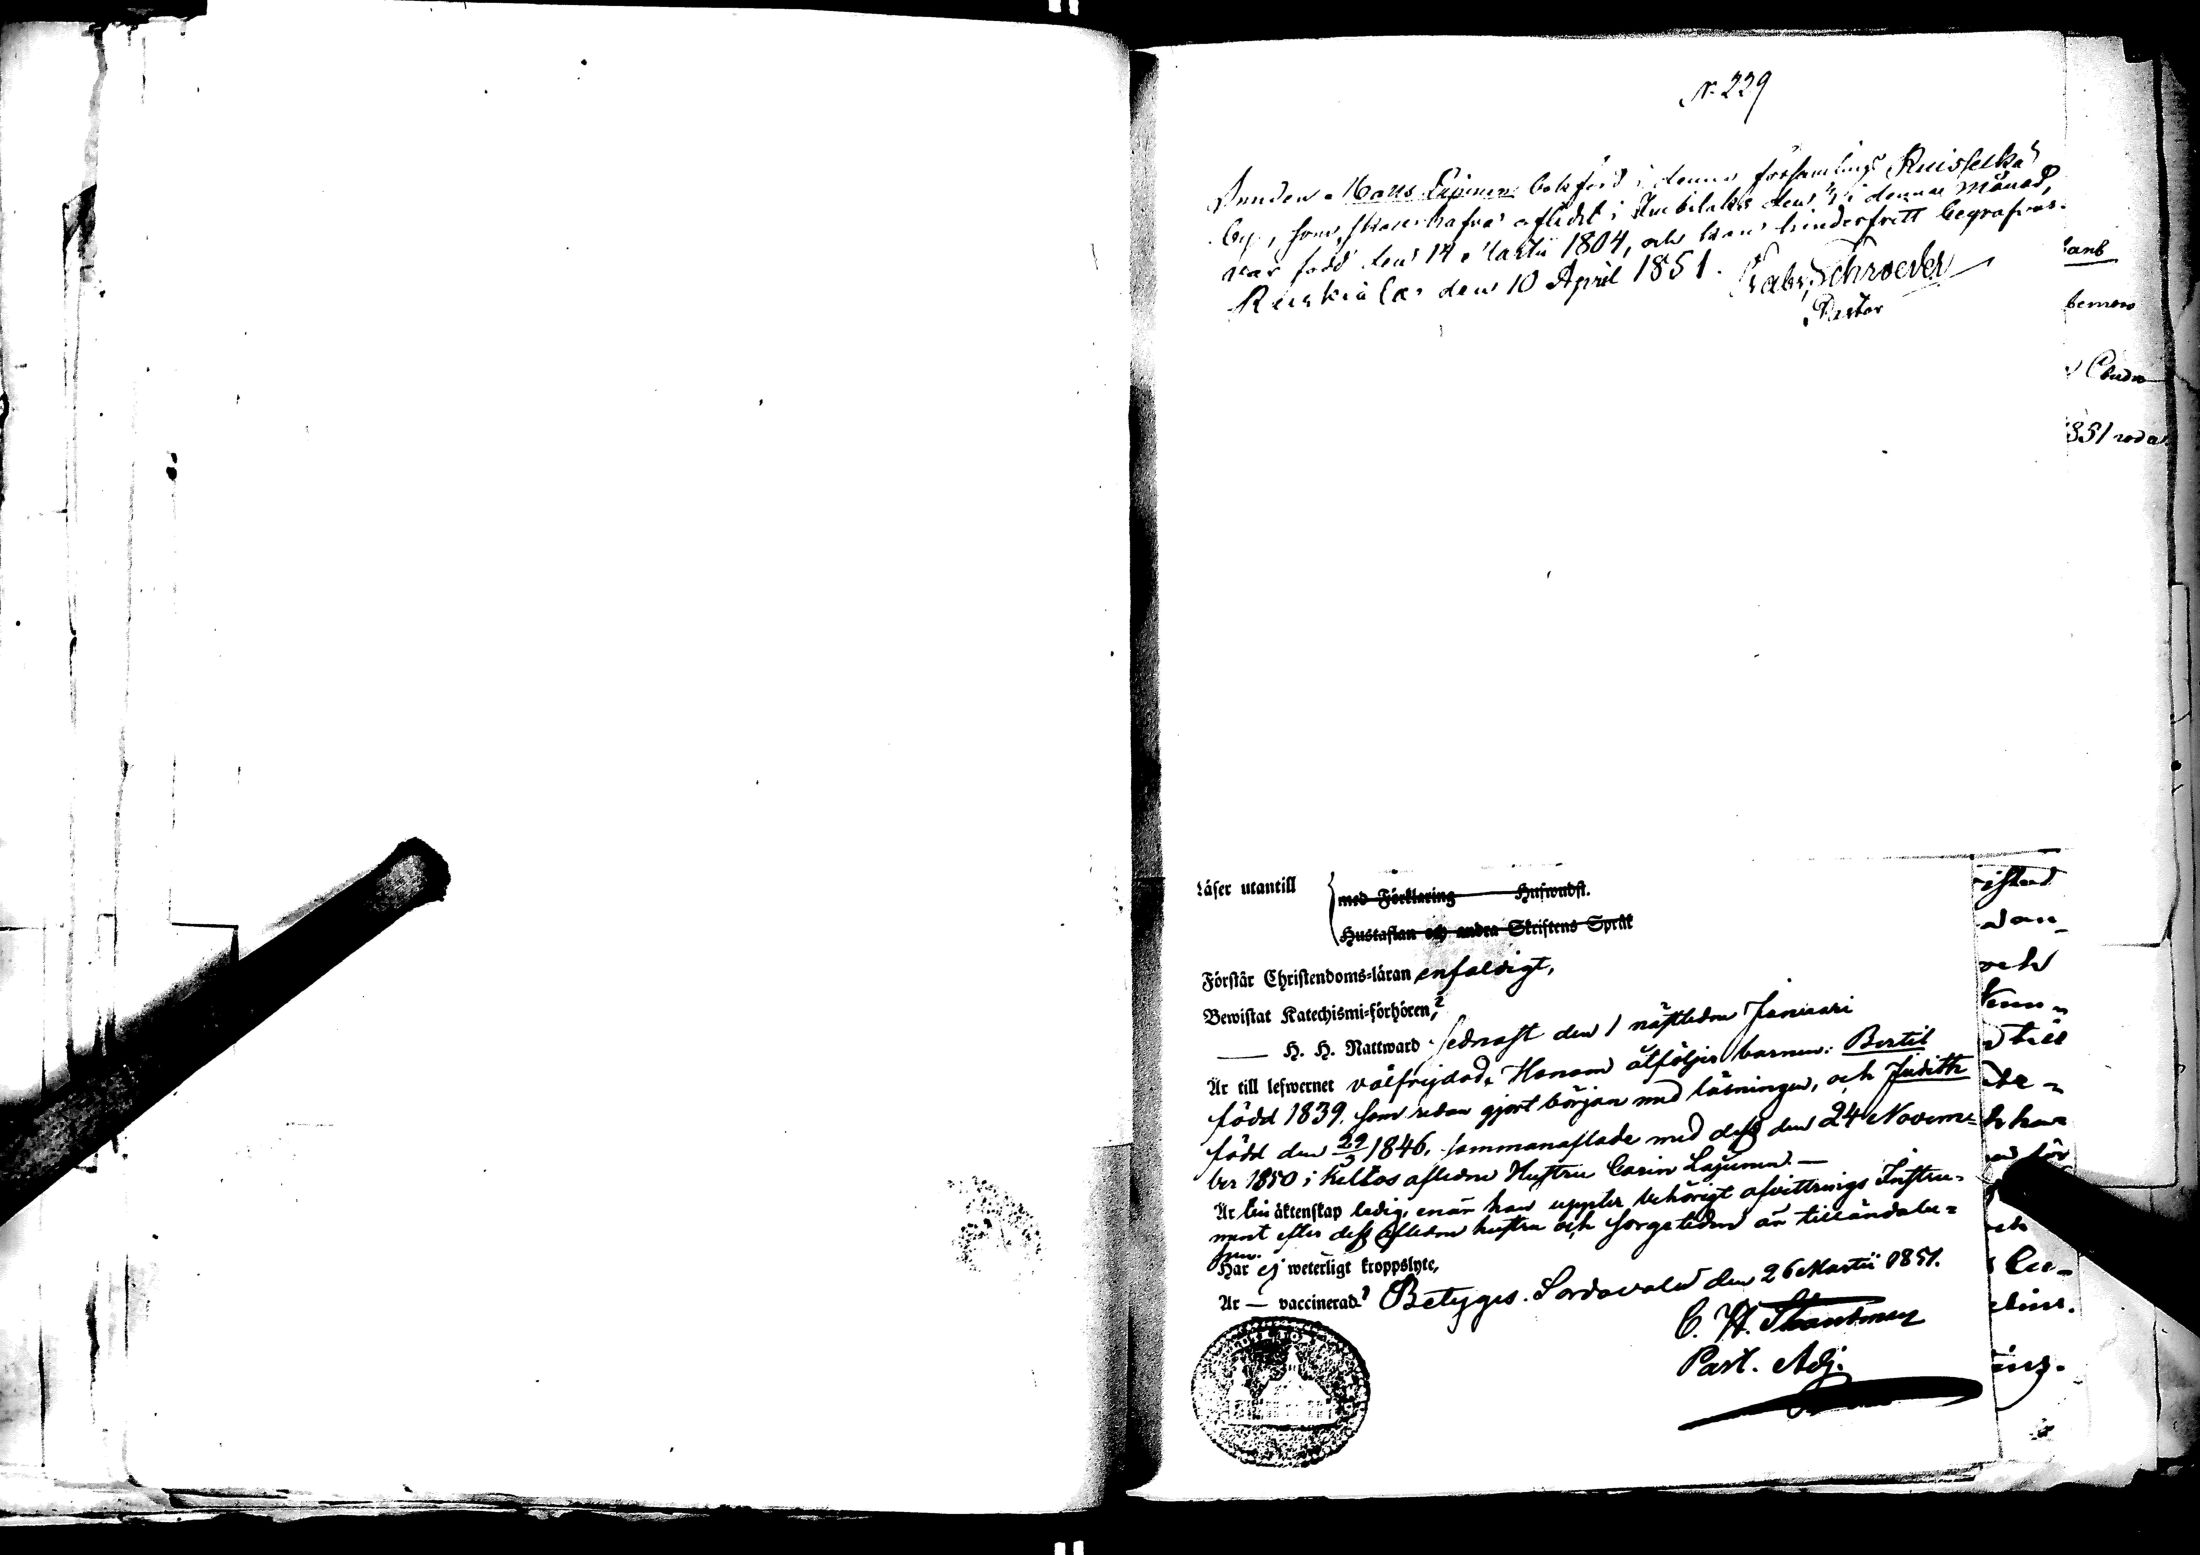 N. 229
Bonden Matts Lipinen bokförd i denna församlings Ruisselkä
by, som skall hafva aflidit i Imbilaks den i denna månad,
var född den 14 Martii 1804, och kan hinderfritt begrafvas.
Ruskiala den 10 April 1851. Gabr. Schroeder
Pastor
land
1851
Läser utantill
med Förklaring Huswudst.
Hustaflan och andra Skriftens Språk
Förstår Christendoms-läran enfaldigt,
Bewistat Katechismi-förhören,
— H. H. Nattward sednast den 1 nästledne Januari
Är till lefwernet välfrejdad. Honom åtföljer barnen: Bertil
född 1839, som redan gjort början med läsningen, och Judith
född den 22/2 1846, sammanaflade med dess den 24 Novem=
ber 1850 i Keltos aflidne Hustru Carin Lajunen.—
Är till äktenskap ledig, enär han uppter behörigt afvittrings Instru=
ment efter dess aflidne hustru och sorgetiden är tilländalu=
pen.
Har ej weterligt kroppslyte,
Är — vaccinerad. Betygas. Sordavala den 26 Martii 1851.
C. H. Strandman
Past. Adj.